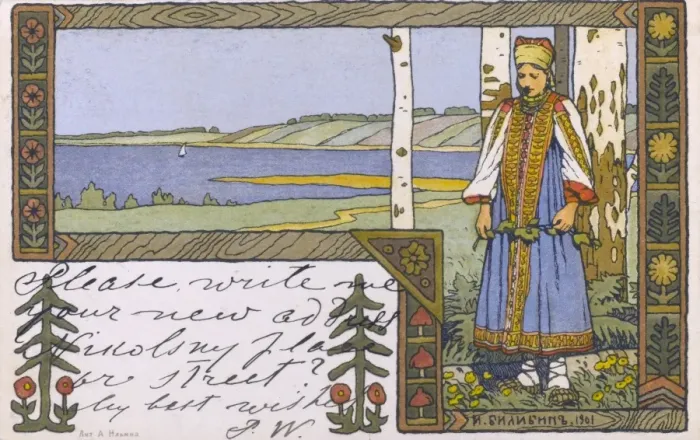 Please, write me
your new address
Nikolsny place
or street?
My best wish
P. W.
И. БИЛИБИНЪ, 1901
Лит. А. Ильина